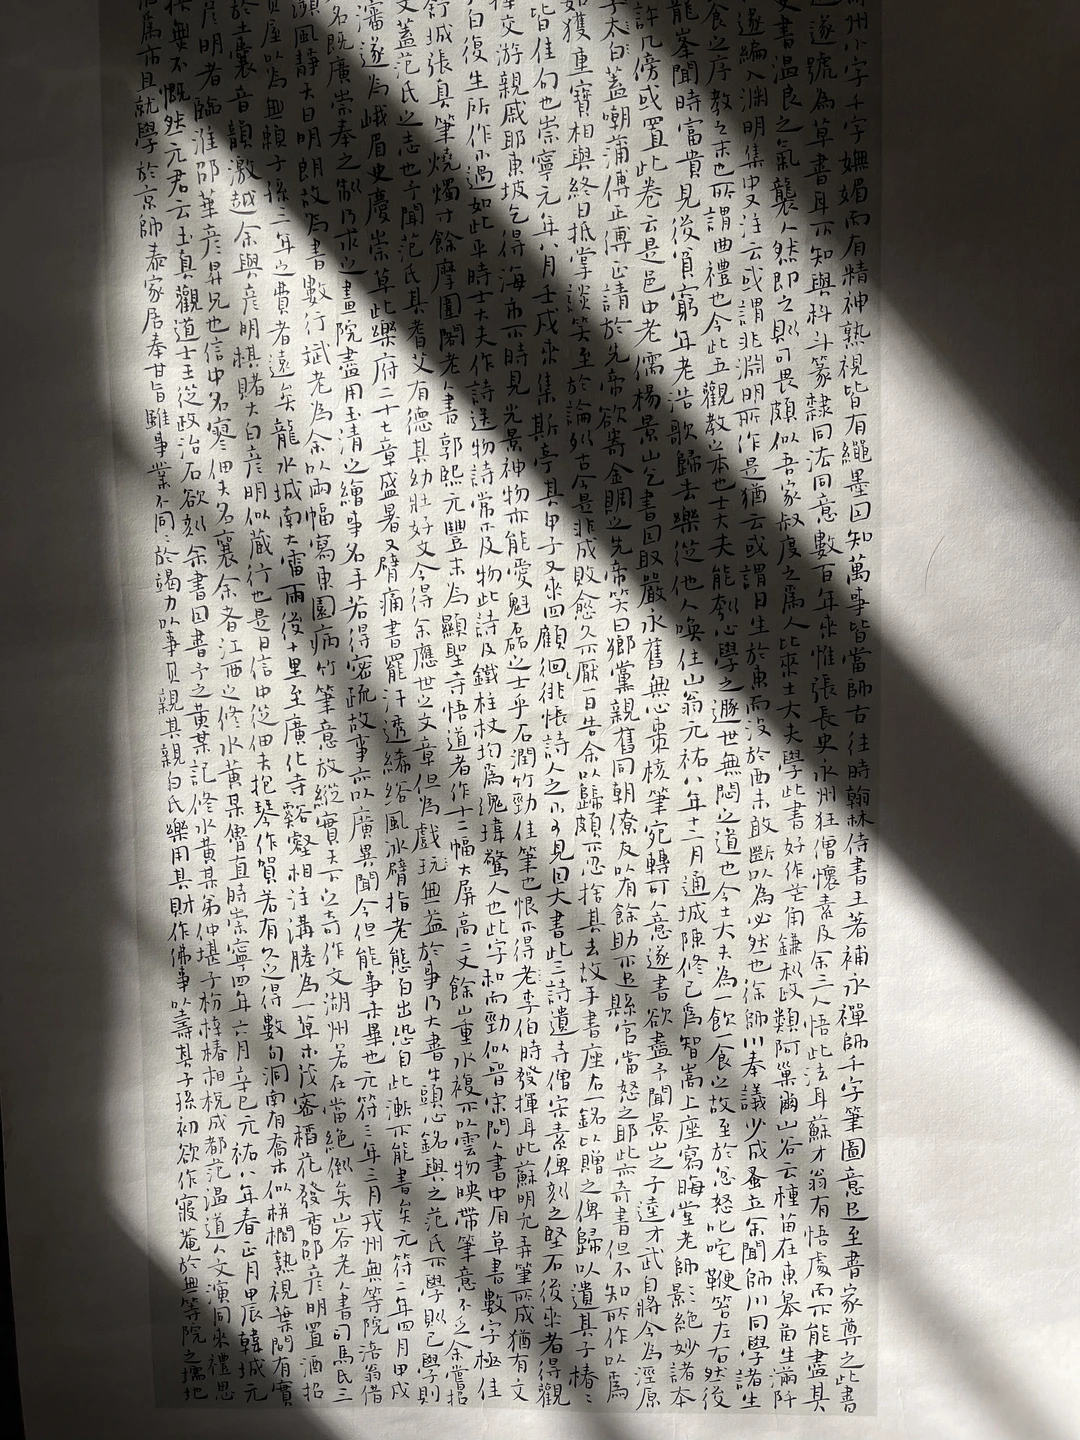 州小字千字嫵媚而有精神熟視皆有繩墨因知萬事皆當師古往時翰林侍書王著補永禪師千字筆圖意臣至書家尊之此書
遂號為草書耳不知與科斗篆隸同法同意數百年來惟張長史永州狂僧懷素及余三人悟此法耳蘇才翁有悟處而不能盡其
書溫良之氣襲人然即之則可畏頗似吾家叔度之為人比來士大夫學此書好作芒角鎌利政類阿巢繭山谷云種苗在東皋苗生滿阡
遂編入淵明集中又注云或謂非淵明所作是猶云或謂日生於東而沒於西未敢斷以為必然也徐師川奉議少成蚤立余聞師川同學諸生
食之序教之末也所謂曲禮也今此五觀教之本也士大夫能刳心學之遯世無悶之道也今士大夫為一飲一食之故至於忿怒叱咤鞭笞左右然後
龍峯聞時富貴見後負窮年老浩歌歸去樂從他人喚住山翁元祐八年十二月通城陳修己為智嵩上座寫晦堂老師影絕妙諸本
許几傍或置此卷云是邑中老儒楊景山乞書因取嚴永舊無心棗核筆宛轉可人意遂書欲盡予聞景山之子達才武自將今為涇原
太白蓋嘲蒲傅正傅正請於先帝欲寄金龍之先帝笑曰鄉黨親舊同朝僚友以有餘助不足縣官當怒之耶此亦奇書但不知所作以為
如獲重寶相與終日抵掌談笑至於論列古今是非成敗愈久不厭一日告余以歸頗不忍捨其去故手書座右銘以贈之俾歸以遺其子椿椿
皆佳句也崇寧元年八月壬戌來集斯亭其甲子又來四顧徊徘悵詩人之不可見因大書此三詩遺寺僧宗素俾刻之堅石後來者得觀
交游親戚耶東坡乞得海市不時見光景神物亦能愛魁磊之士乎石潤竹勁佳筆也恨不得老李伯時發揮耳此蘇明允弄筆所成猶有文
白復生所作小過如此平時士大夫作詩送物詩常不及物此詩及鐵柱杖均為瑰瑋驚人也此字和而勁似晉宋間人書中有草書數字極佳
舒城張真筆燒燭寸餘摩圍閣老人書郭熙元豐末為顯聖寺悟道者作十二幅大屏高二丈餘山重水複不以雲物映帶筆意不乏余嘗招
文蓋范氏之志也予聞范氏其耆艾有德其幼壯好文今得余應世之文章但為戲玩無益於事乃大書牛頭心銘與之范氏不學則已學則
瀋遂為峨眉史慶崇草此樂府二十七章盛暑又臂痛書罷汗透絺綌風冰臂指老態百出恐自此漸不能書矣元符二年四月甲戌
名既廣崇奉之制乃求之畫院盡用玉清之繪事名手若得密疏故事亦以廣異聞今但能事未畢也元符三年三月戎州無等院涪翁借
瀕風靜大日明朗故為書數行斌老為余以兩幅寫東園病竹筆意放縱實天下之奇作文湖州若在當絕倒矣山谷老人書司馬氏三
屋以為無賴子孫二年之費者遠矣龍水城南大雷雨後十里至廣化寺谿壑相注溝塍為一草木茂密稻花發香邵彦明置酒招
於土囊音韻激越余與彦明棋賭大白彦明似藏行也是日信中從佃夫抱琴作賀若有久之得數句洞南有喬木似栟櫚熟視葉間有實
彦明者臨淮邵華彦昇兄也信中名寥佃夫名襄余者江西之修水黃某魯直時崇寧四年六月辛巳元祐八年春正月甲辰韓城元
無不慨然元君云玉真觀道士王從政治石欲刻余書因書予之黃某記修水黃某弟仲堪子枌梓椿相梲成都范溫道人文演同來禮思
為市且就學於京師泰家居奉甘旨雖事業不同同於竭力以事貝親其親白氏樂用其財作佛事以壽其子孫初欲作寢菴於無等院之壖地